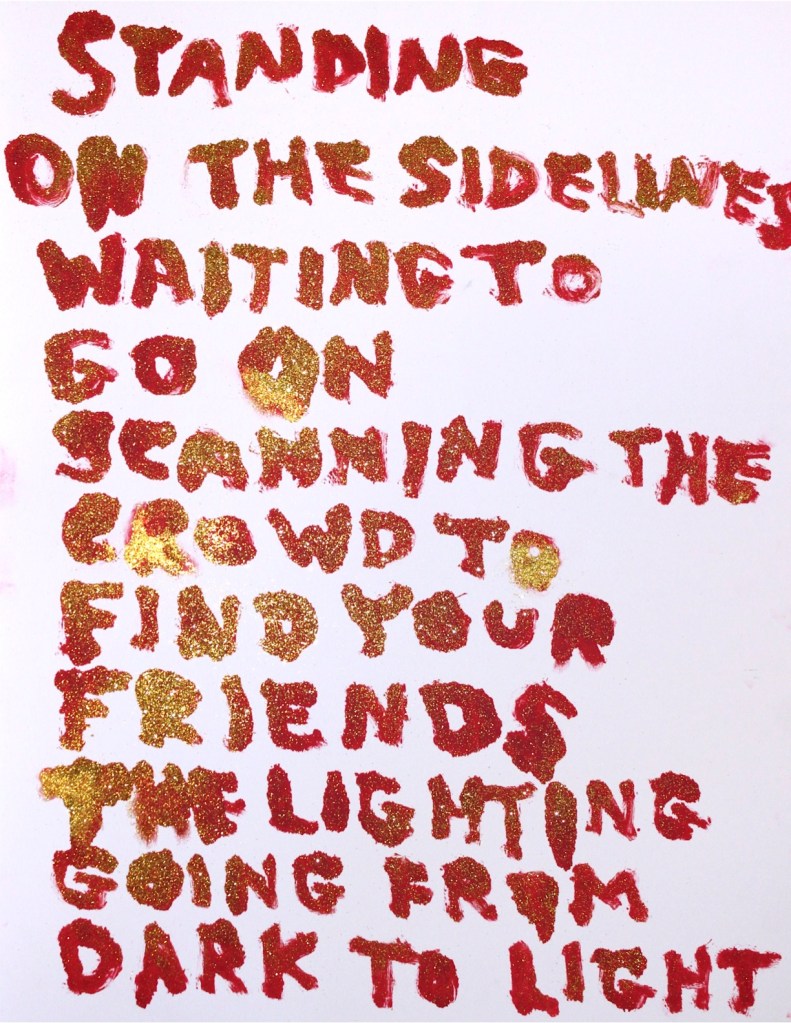 STANDING
ON THE SIDELINES
WAITING TO
GO ON
SCANNING THE
CROWD TO
FIND YOUR
FRIENDS
THE LIGHTING
GOING FROM
DARK TO LIGHT